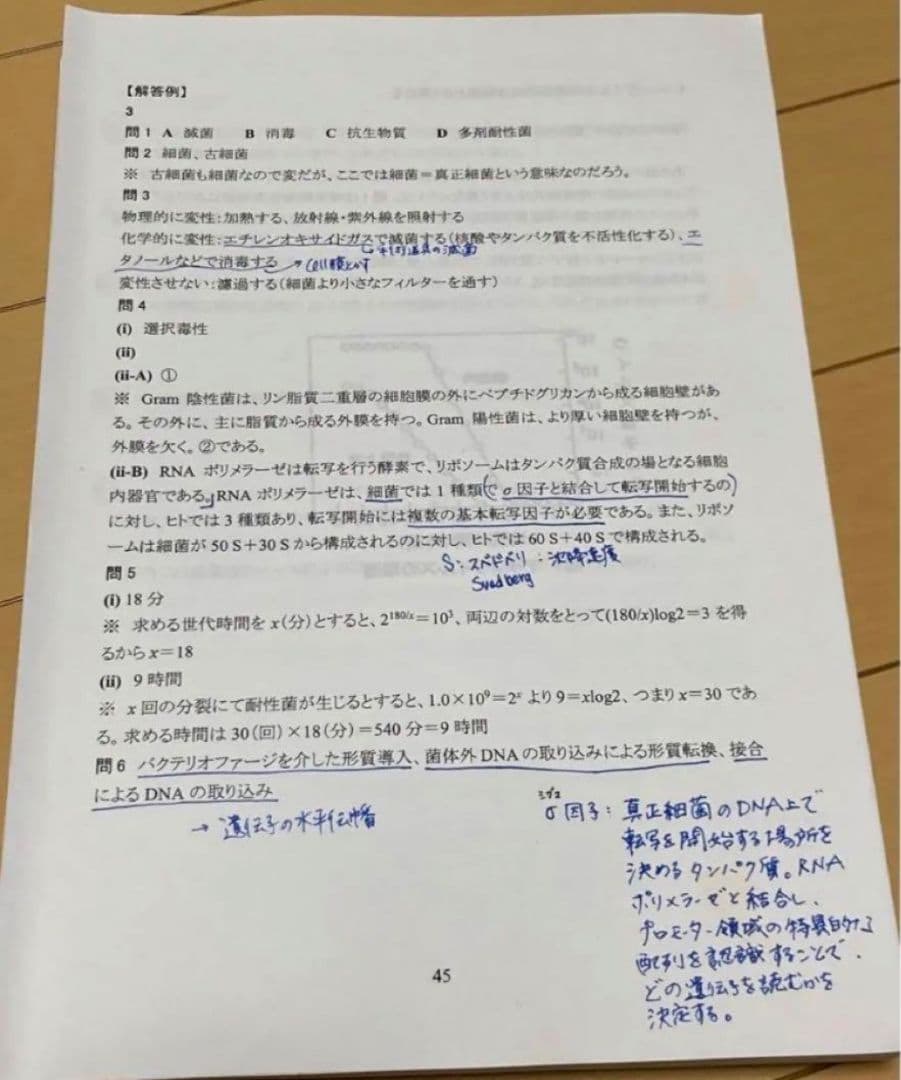 【解答例】
3
問1 A 滅菌 B 消毒 C 抗生物質 D 多剤耐性菌
問2 細菌、古細菌
※ 古細菌も細菌なので変だが、ここでは細菌=真正細菌という意味なのだろう。
問3
物理的に変性:加熱する、放射線・紫外線を照射する
化学的に変性:エチレンオキサイドガスで滅菌する(核酸やタンパク質を不活性化する)、エ
↳手術道具の滅菌
タノールなどで消毒する → cell膜とかす
変性させない:濾過する(細菌より小さなフィルターを通す)
問4
(i) 選択毒性
(ii)
(ii-A) ①
※ Gram 陰性菌は、リン脂質二重層の細胞膜の外にペプチドグリカンから成る細胞壁があ
る。その外に、主に脂質から成る外膜を持つ。Gram 陽性菌は、より厚い細胞壁を持つが、
外膜を欠く。②である。
(ii-B) RNA ポリメラーゼは転写を行う酵素で、リボソームはタンパク質合成の場となる細胞
内器官である。RNA ポリメラーゼは、細菌では 1 種類(でσ因子と結合して転写開始するの)
に対し、ヒトでは 3 種類あり、転写開始には複数の基本転写因子が必要である。また、リボソ
ームは細菌が 50 S+30 S から構成されるのに対し、ヒトでは 60 S+40 S で構成される。
S:スベドベリ:沈降速度
Svedberg
問5
(i) 18 分
※ 求める世代時間を x(分)とすると、2^{180/x}=10³、両辺の対数をとって(180/x)log2=3 を得
るから x=18
(ii) 9 時間
※ x 回の分裂にて耐性菌が生じるとすると、1.0×10⁹=2ˣ より 9=xlog2、つまり x=30 であ
る。求める時間は 30(回)×18(分)=540 分=9 時間
問6 バクテリオファージを介した形質導入、菌体外 DNA の取り込みによる形質転換、接合
による DNA の取り込み
→ 遺伝子の水平伝播
シグマ
σ因子:真正細菌のDNA上で
転写を開始する場所を
決めるタンパク質。RNA
ポリメラーゼと結合し、
プロモーター領域の特異的な
配列を認識することで、
どの遺伝子を読むかを
決定する。
45